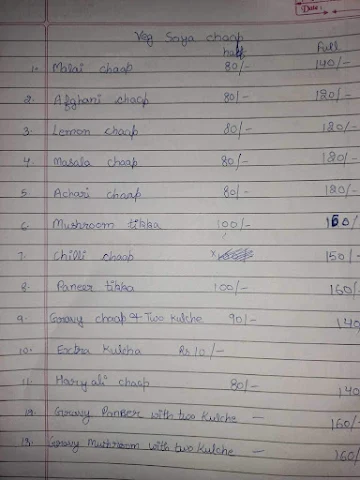 Date:
Veg Soya chaap
half Full
1. Malai chaap 80/- 140/-
2. Afghani chaap 80/- 120/-
3. Lemon chaap 80/- 120/-
4. Masala chaap 80/- 120/-
5. Achari chaap 80/- 120/-
6. Mushroom tikka 100/- 160/
7. Chilli chaap 150/-
8. Paneer tikka 100/- 160/
9. Gravy chaap & Two Kulche 90/- 140
10. Extra Kulcha Rs 10/-
11. Haryali chaap 80/- 140
12. Gravy Paneer with two Kulche - 160/
13. Gravy Mushroom with two Kulche - 160/